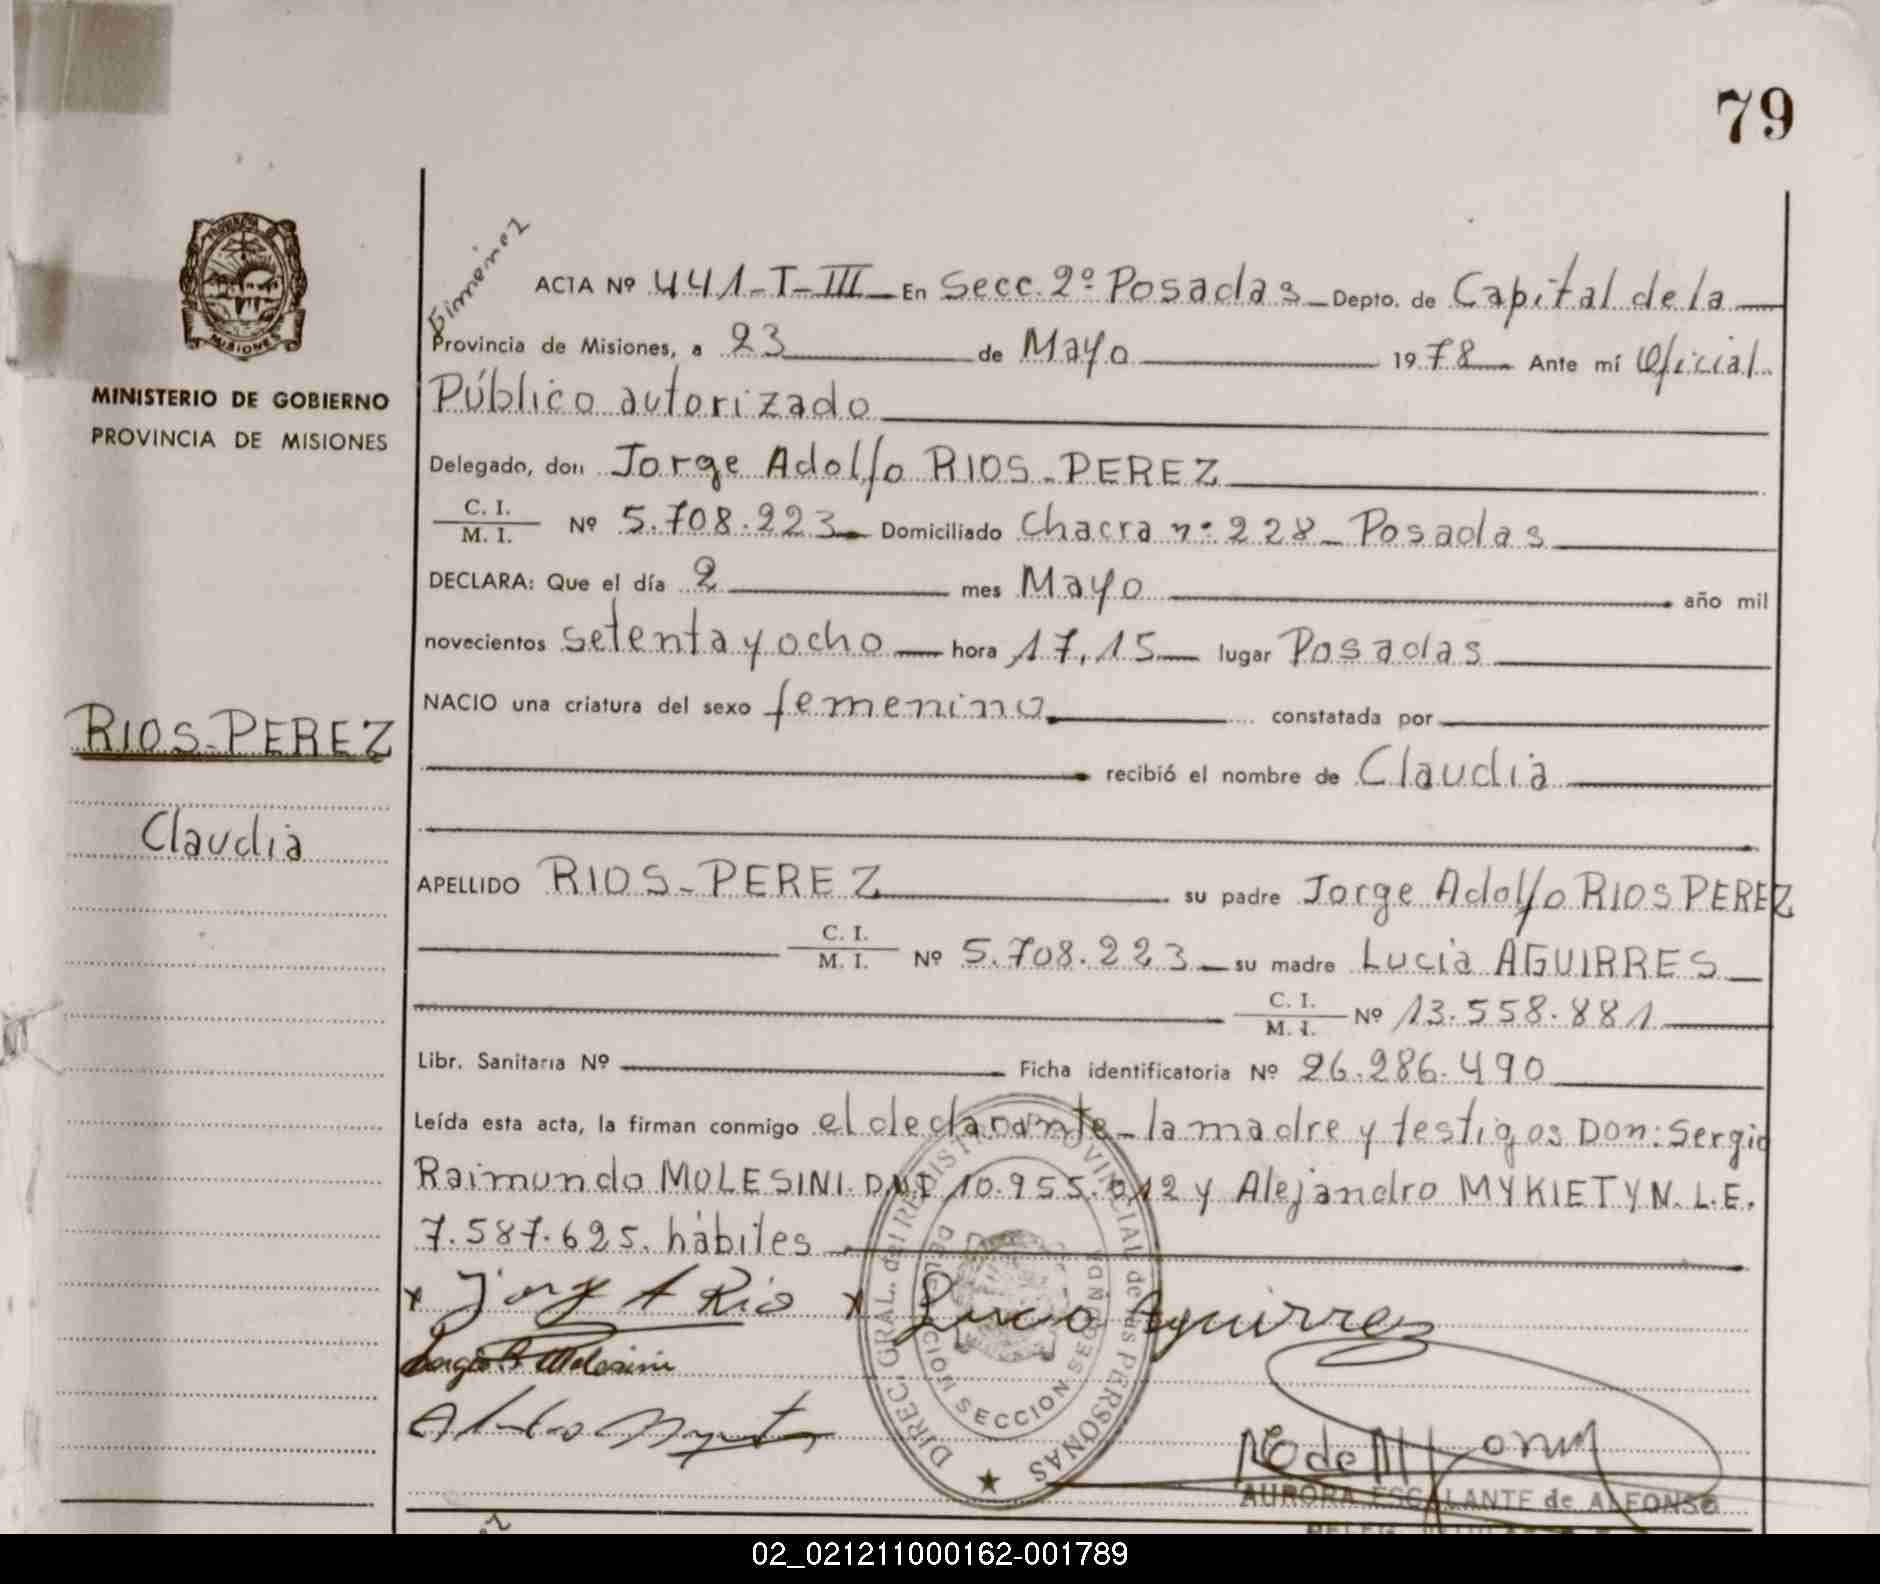 79
Gimenez
PROVINCIA DE
MISIONES
MINISTERIO DE GOBIERNO
PROVINCIA DE MISIONES
RIOS-PEREZ
Claudia
ACTA Nº 441-T-III En Secc. 2º Posadas Depto. de Capital de la
Provincia de Misiones, a 23 de Mayo 1978 Ante mí Oficial
Público autorizado
Delegado, don Jorge Adolfo RIOS-PEREZ
C. I.
M. I. Nº 5.708.223 Domiciliado Chacra nº 228 - Posadas
DECLARA: Que el día 2 mes Mayo año mil
novecientos setenta y ocho hora 17,15 lugar Posadas
NACIO una criatura del sexo femenino constatada por
recibió el nombre de Claudia
APELLIDO RIOS-PEREZ su padre Jorge Adolfo RIOS PEREZ
C. I.
M. I. Nº 5.708.223 su madre Lucia AGUIRRES
C. I.
M. I. Nº 13.558.881
Libr. Sanitaria Nº Ficha identificatoria Nº 26.286.490
Leída esta acta, la firman conmigo el declarante - la madre y testigos Don: Sergio
Raimundo MOLESINI. DNI 10.955.012 y Alejandro MYKIETYN. L.E.
7.587.625. hábiles
x Jorge A Rio x Lucia Aguirres
Sergio R Molesini
DIREC. GRAL. del REGISTRO PROVINCIAL de las PERSONAS
SECCION SEGUNDA
AURORA ESCALANTE de ALFONSO
02_021211000162-001789